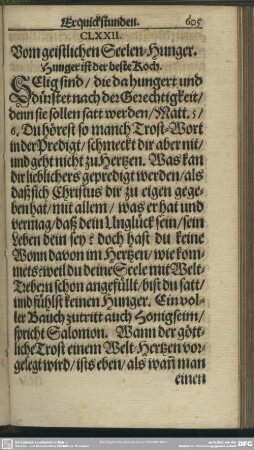 Erquickstunden. 605
CLXXII.
Vom geistlichen Seelen-Hunger.
Hunger ist der beste Koch.
SElig sind / die da hungert und
dürstet nach der Gerechtigkeit /
denn sie sollen satt werden / Matt. 5 /
6. Du hörest so manch Trost-Wort
in der Predigt / schmeckt dir aber nit /
und geht nicht zu Hertzen. Was kan
dir lieblichers gepredigt werden / als
daß sich Christus dir zu eigen gege-
ben hat / mit allem / was er hat und
vermag / daß dein Unglück sein / sein
Leben dein sey? doch hast du keine
Wonn davon im Hertzen / wie kom-
mets? weil du deine Seele mit Welt-
Trebern schon angefüllt / bist du satt /
und fühlst keinen Hunger. Ein vol-
ler Bauch zutritt auch Honigseim /
spricht Salomon. Wann der gött-
liche Trost einem Welt-Hertzen vor-
gelegt wird / ists eben / als wañ man
einen